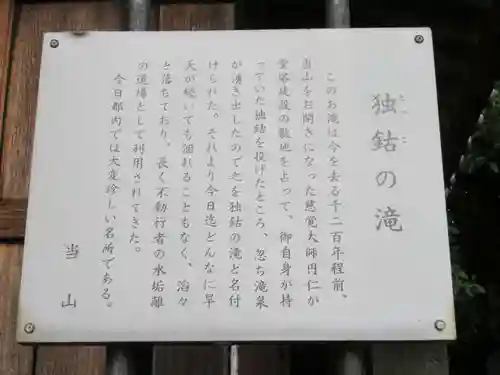 独鈷の滝
とっこ
このお滝は今を去る千二百年程前、
当山をお開きになった慈覚大師円仁が
堂塔建設の敷地を占って、御自身が持
っていた独鈷を投げたところ、忽ち滝泉
が湧き出したので之を独鈷の滝と名付
けられた。それより今日迄どんなに旱
天が続いても涸れることもなく、滔々
と落ちており、長く不動行者の水垢離
の道場として利用されてきた。
今日都内では大変珍しい名所である。
当山